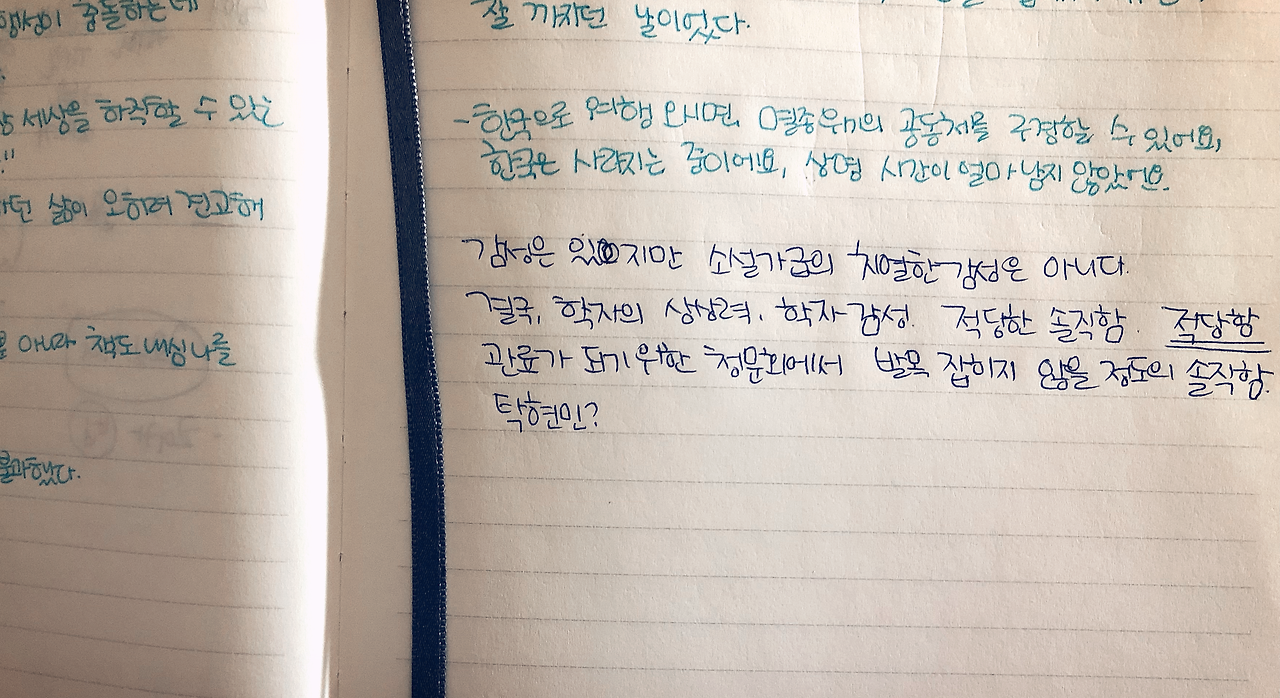 충돌하는데
세상을 하직할 수 있는
"
던 삶이 오히려 견고해
아니라 책도 내심 나를
불과했다.
잘 까지던 날이었다.
- 한국으로 여행 오시면, 멸종위기의 공동체를 구경할 수 있어요,
한국은 사라지는 중이에요, 상영 시간이 얼마 남지 않았어요.
감성은 있지만 소설가급의 치열한 감성은 아니다.
결국, 학자의 상상력. 학자 감성. 적당한 솔직함. 적당함
관료가 되기 위한 청문회에서 발목 잡히지 않을 정도의 솔직함.
탁현민?